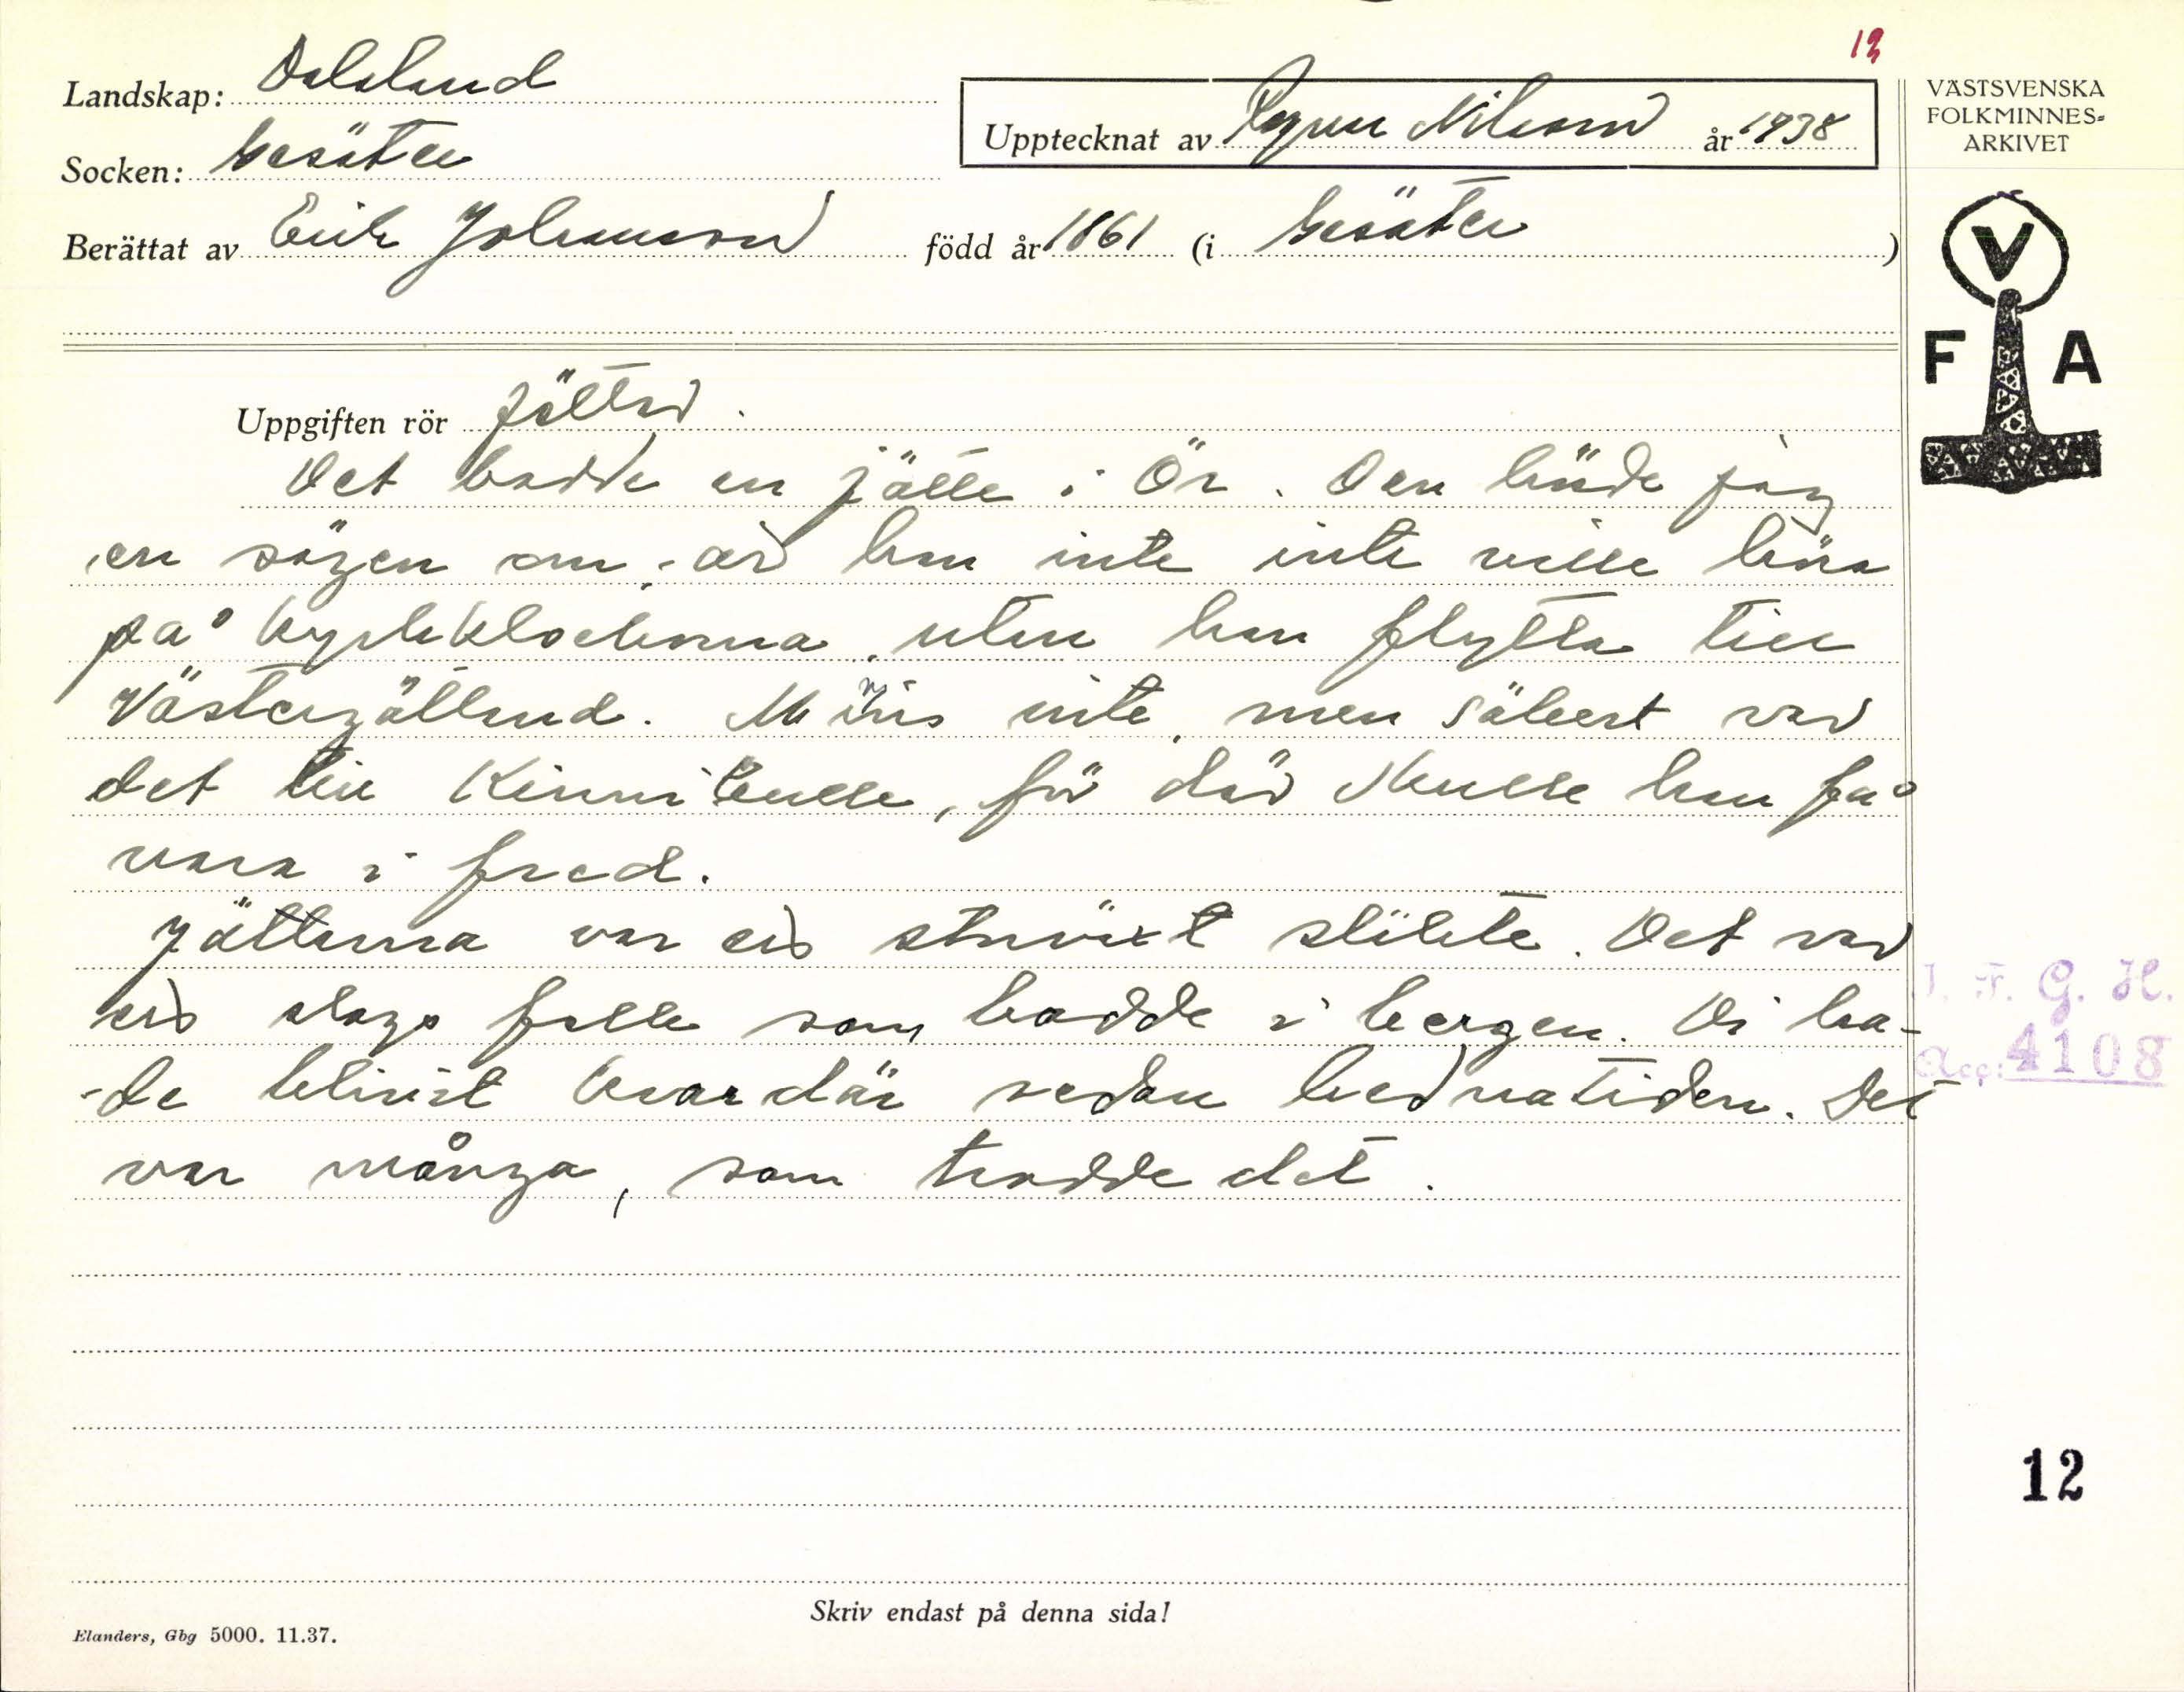 12
Landskap: Dalsland
Upptecknat av Ragnar Nilsson år 1938
VÄSTSVENSKA
FOLKMINNES=
ARKIVET
Socken: Gesäter
Berättat av Erik Johansson född år 1861 (i Gesäter)
V
F A
Uppgiften rör Jättar.
Det bodde en jätte i Ör. Den hörde jag
en sägen om, att han inte inte ville höra
på kyrkklockorna, utan han flytta till
Västergötland. Minns inte, men säkert var
det till Kinnikulle, för där skulle han få
vara i fred.
Jättarna var ett storväxt släkte. Det var
ett slags folk som bodde i bergen. Di ha-
-de blivit kvar där sedan hednatiden. Det
var många, som trodde det.
I. F. G. H.
Acc: 4108
12
Skriv endast på denna sida!
Elanders, Gbg 5000. 11.37.